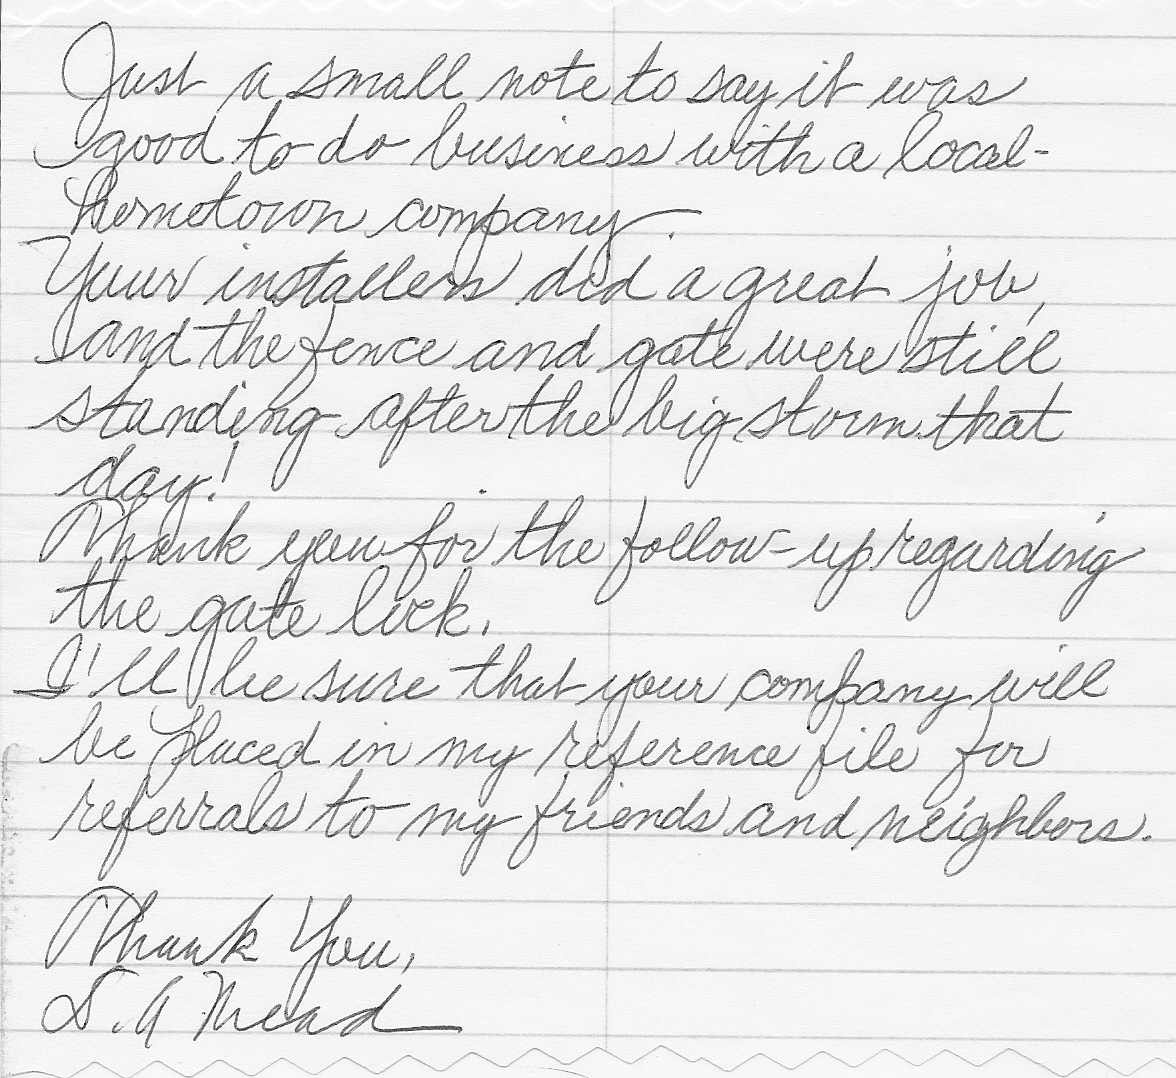 Just a small note to say it was
good to do business with a local-
hometown company.
Your installers did a great job,
and the fence and gate were still
standing after the big storm that
day!
Thank you for the follow-up regarding
the gate lock.
I'll be sure that your company will
be placed in my reference file for
referrals to my friends and neighbors.
Thank You,
S. A Mead